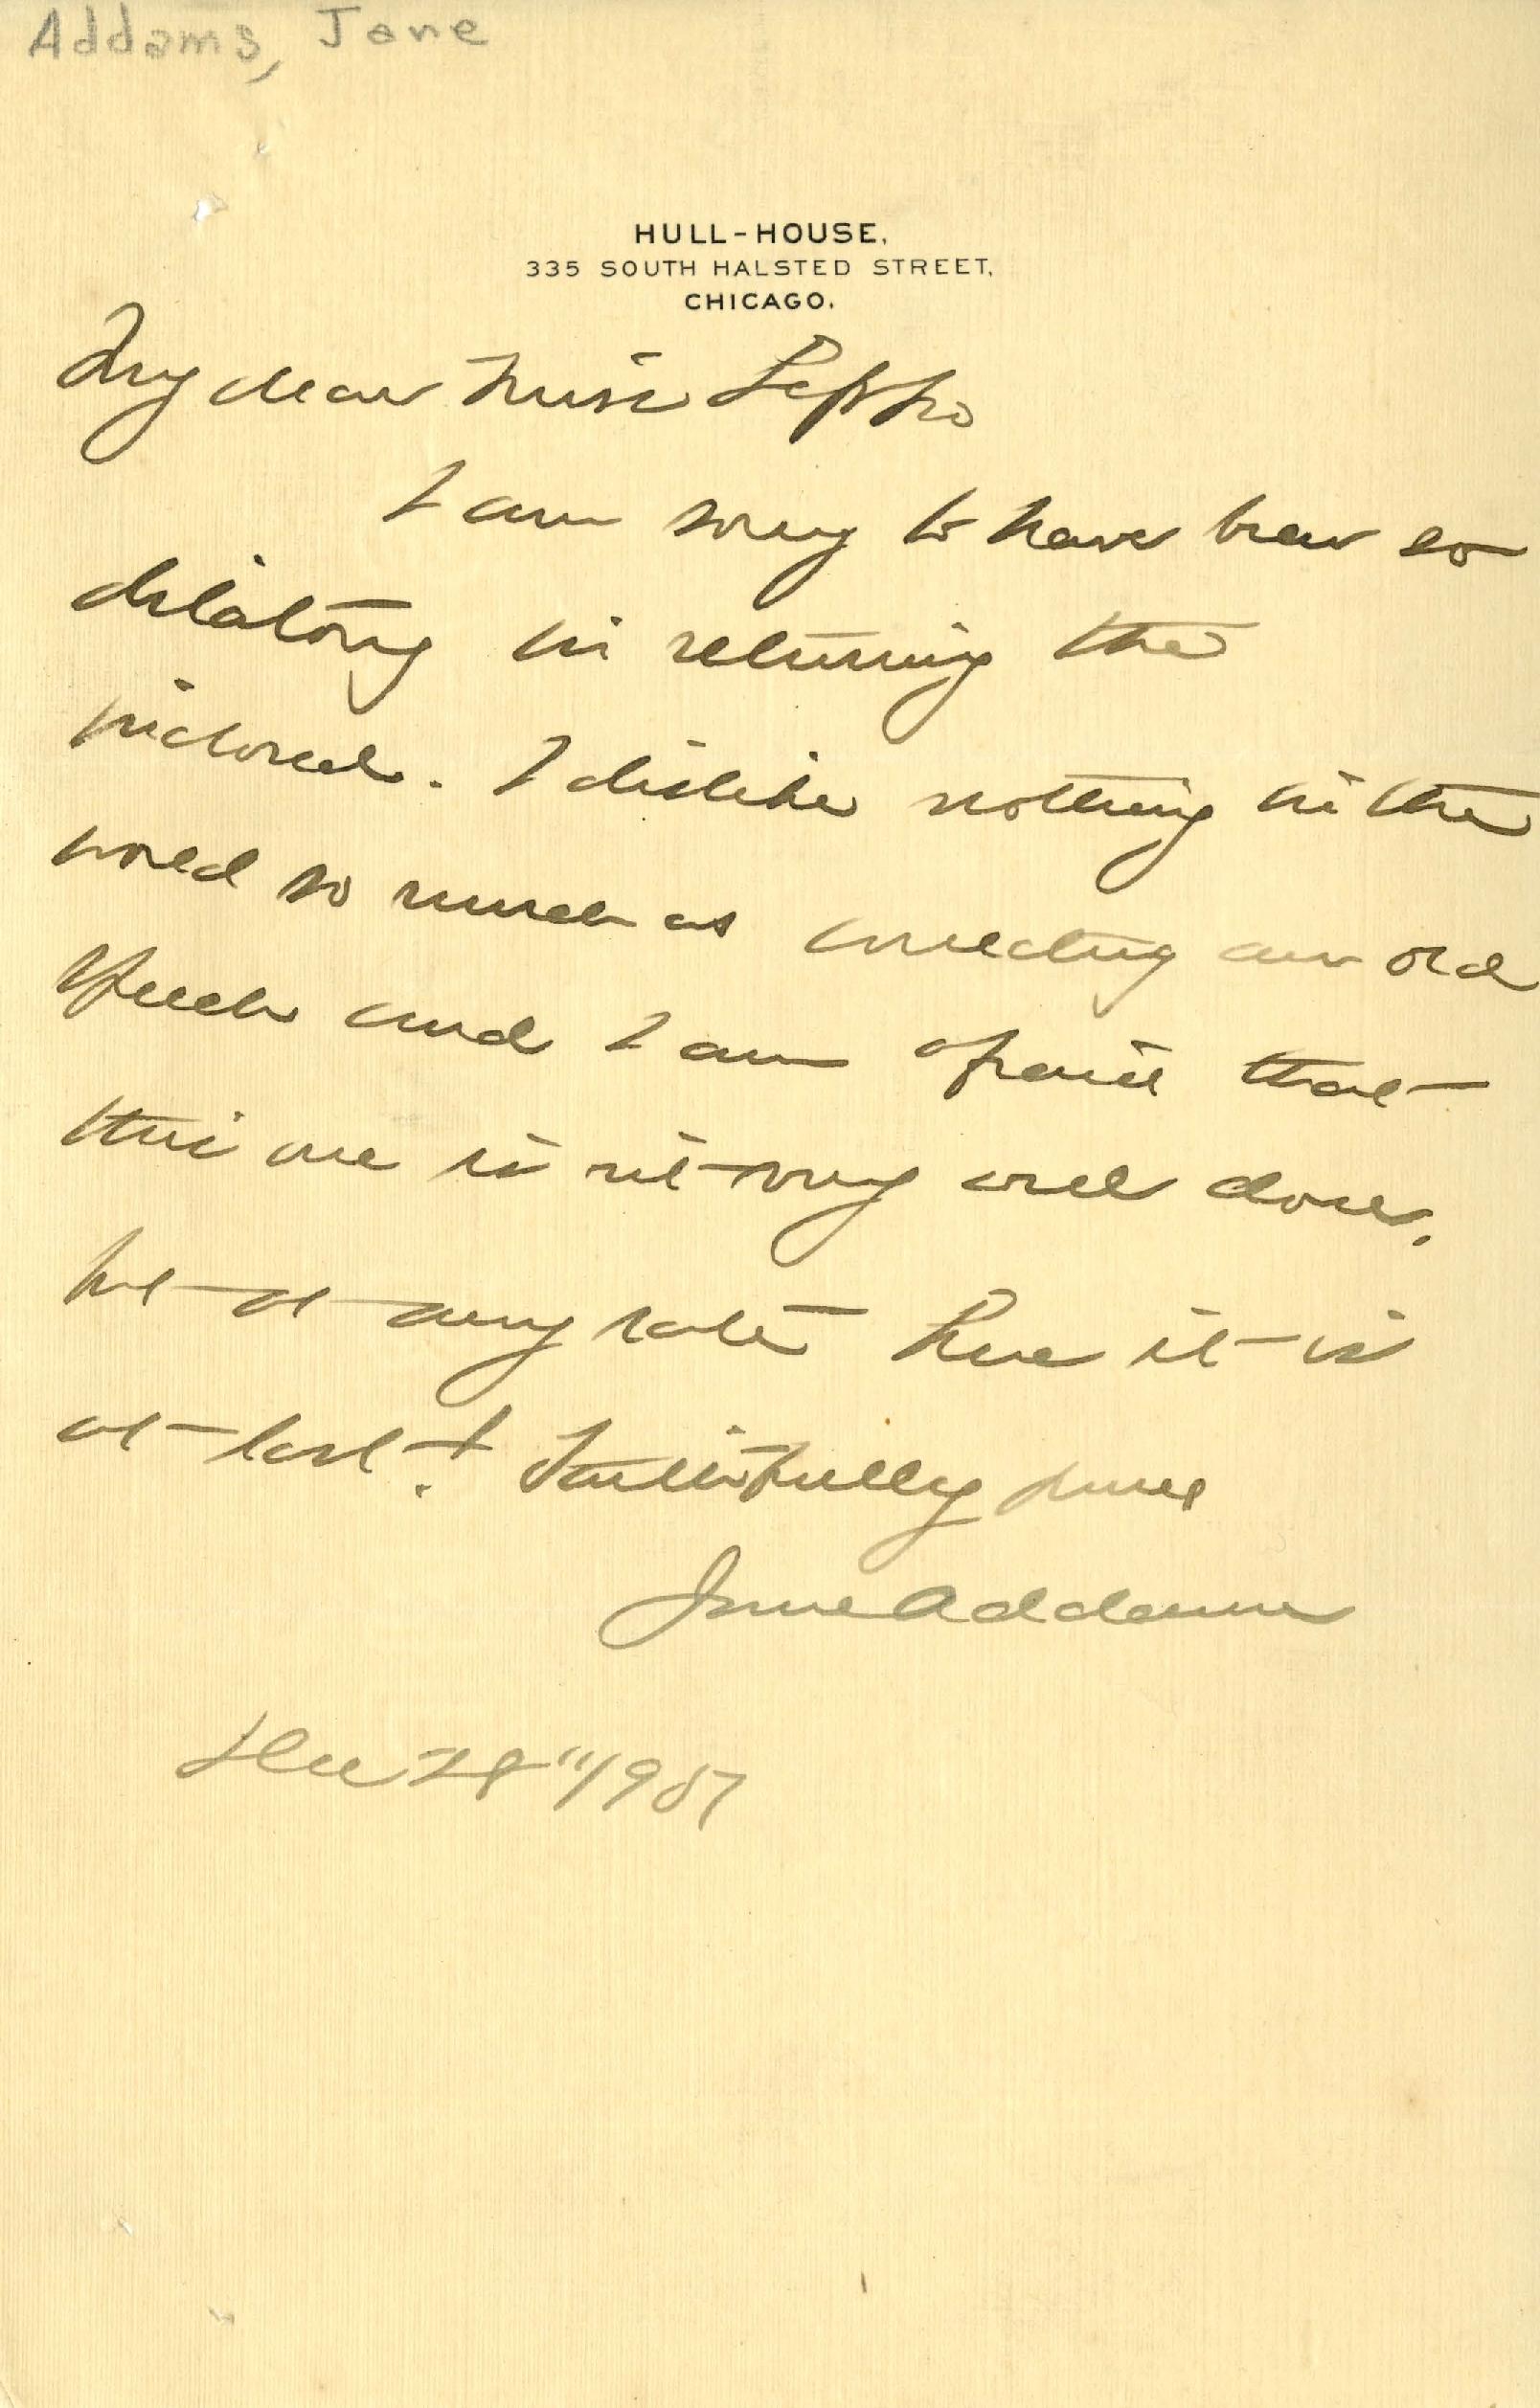 Addams, Jane
HULL-HOUSE,
335 SOUTH HALSTED STREET,
CHICAGO.
My dear Miss
I am sorry to have been so
dilatory in returning the
enclosed. I dislike nothing in the
world so much as correcting an old
speech and I am afraid that
this one is not very well done,
but at any rate here it is
at last! Faithfully yours
Jane Addams
1907